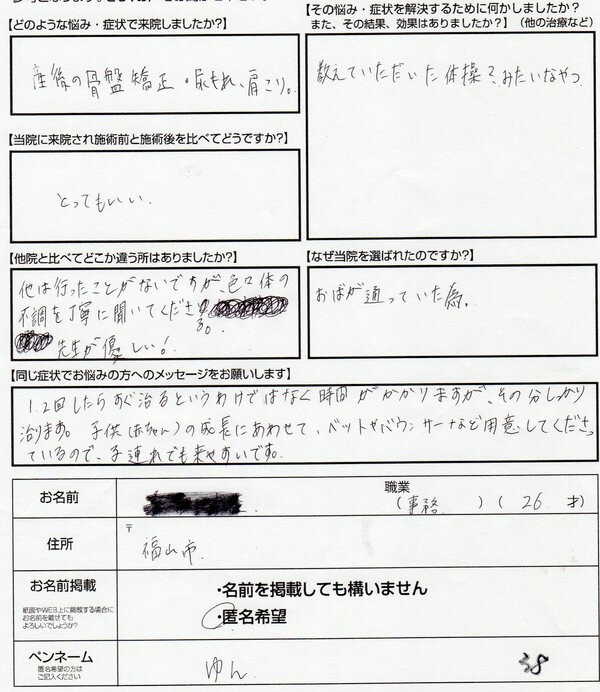 【どのような悩み・症状で来院しましたか?】
産後の骨盤矯正。尿もれ、肩こり。
【その悩み・症状を解決するために何かしましたか?
また、その結果、効果はありましたか?】(他の治療など)
教えていただいた体操?みたいなやつ
【当院に来院され施術前と施術後を比べてどうですか?】
とってもいい。
【他院と比べてどこか違う所はありましたか?】
他は行ったことがないですが、色々体の
不調を丁寧に聞いてくださる。
先生が優しい!
【なぜ当院を選ばれたのですか?】
おばが通っていた為。
【同じ症状でお悩みの方へのメッセージをお願いします】
1.2回したらすぐ治るというわけではなく時間がかかりますが、その分しっかり
治ります。子供(赤ちゃん)の成長にあわせて、ベットやバウンサーなど用意してくださっ
ているので、子連れでも来やすいです。
お名前
職業
(事務)(26才)
住所
〒
福山市
お名前掲載
紙面やWEB上に掲載する場合に
お名前を載せても
よろしいでしょうか?
・名前を掲載しても構いません
・匿名希望
ペンネーム
匿名希望の方は
ご記入ください
ゆん
38